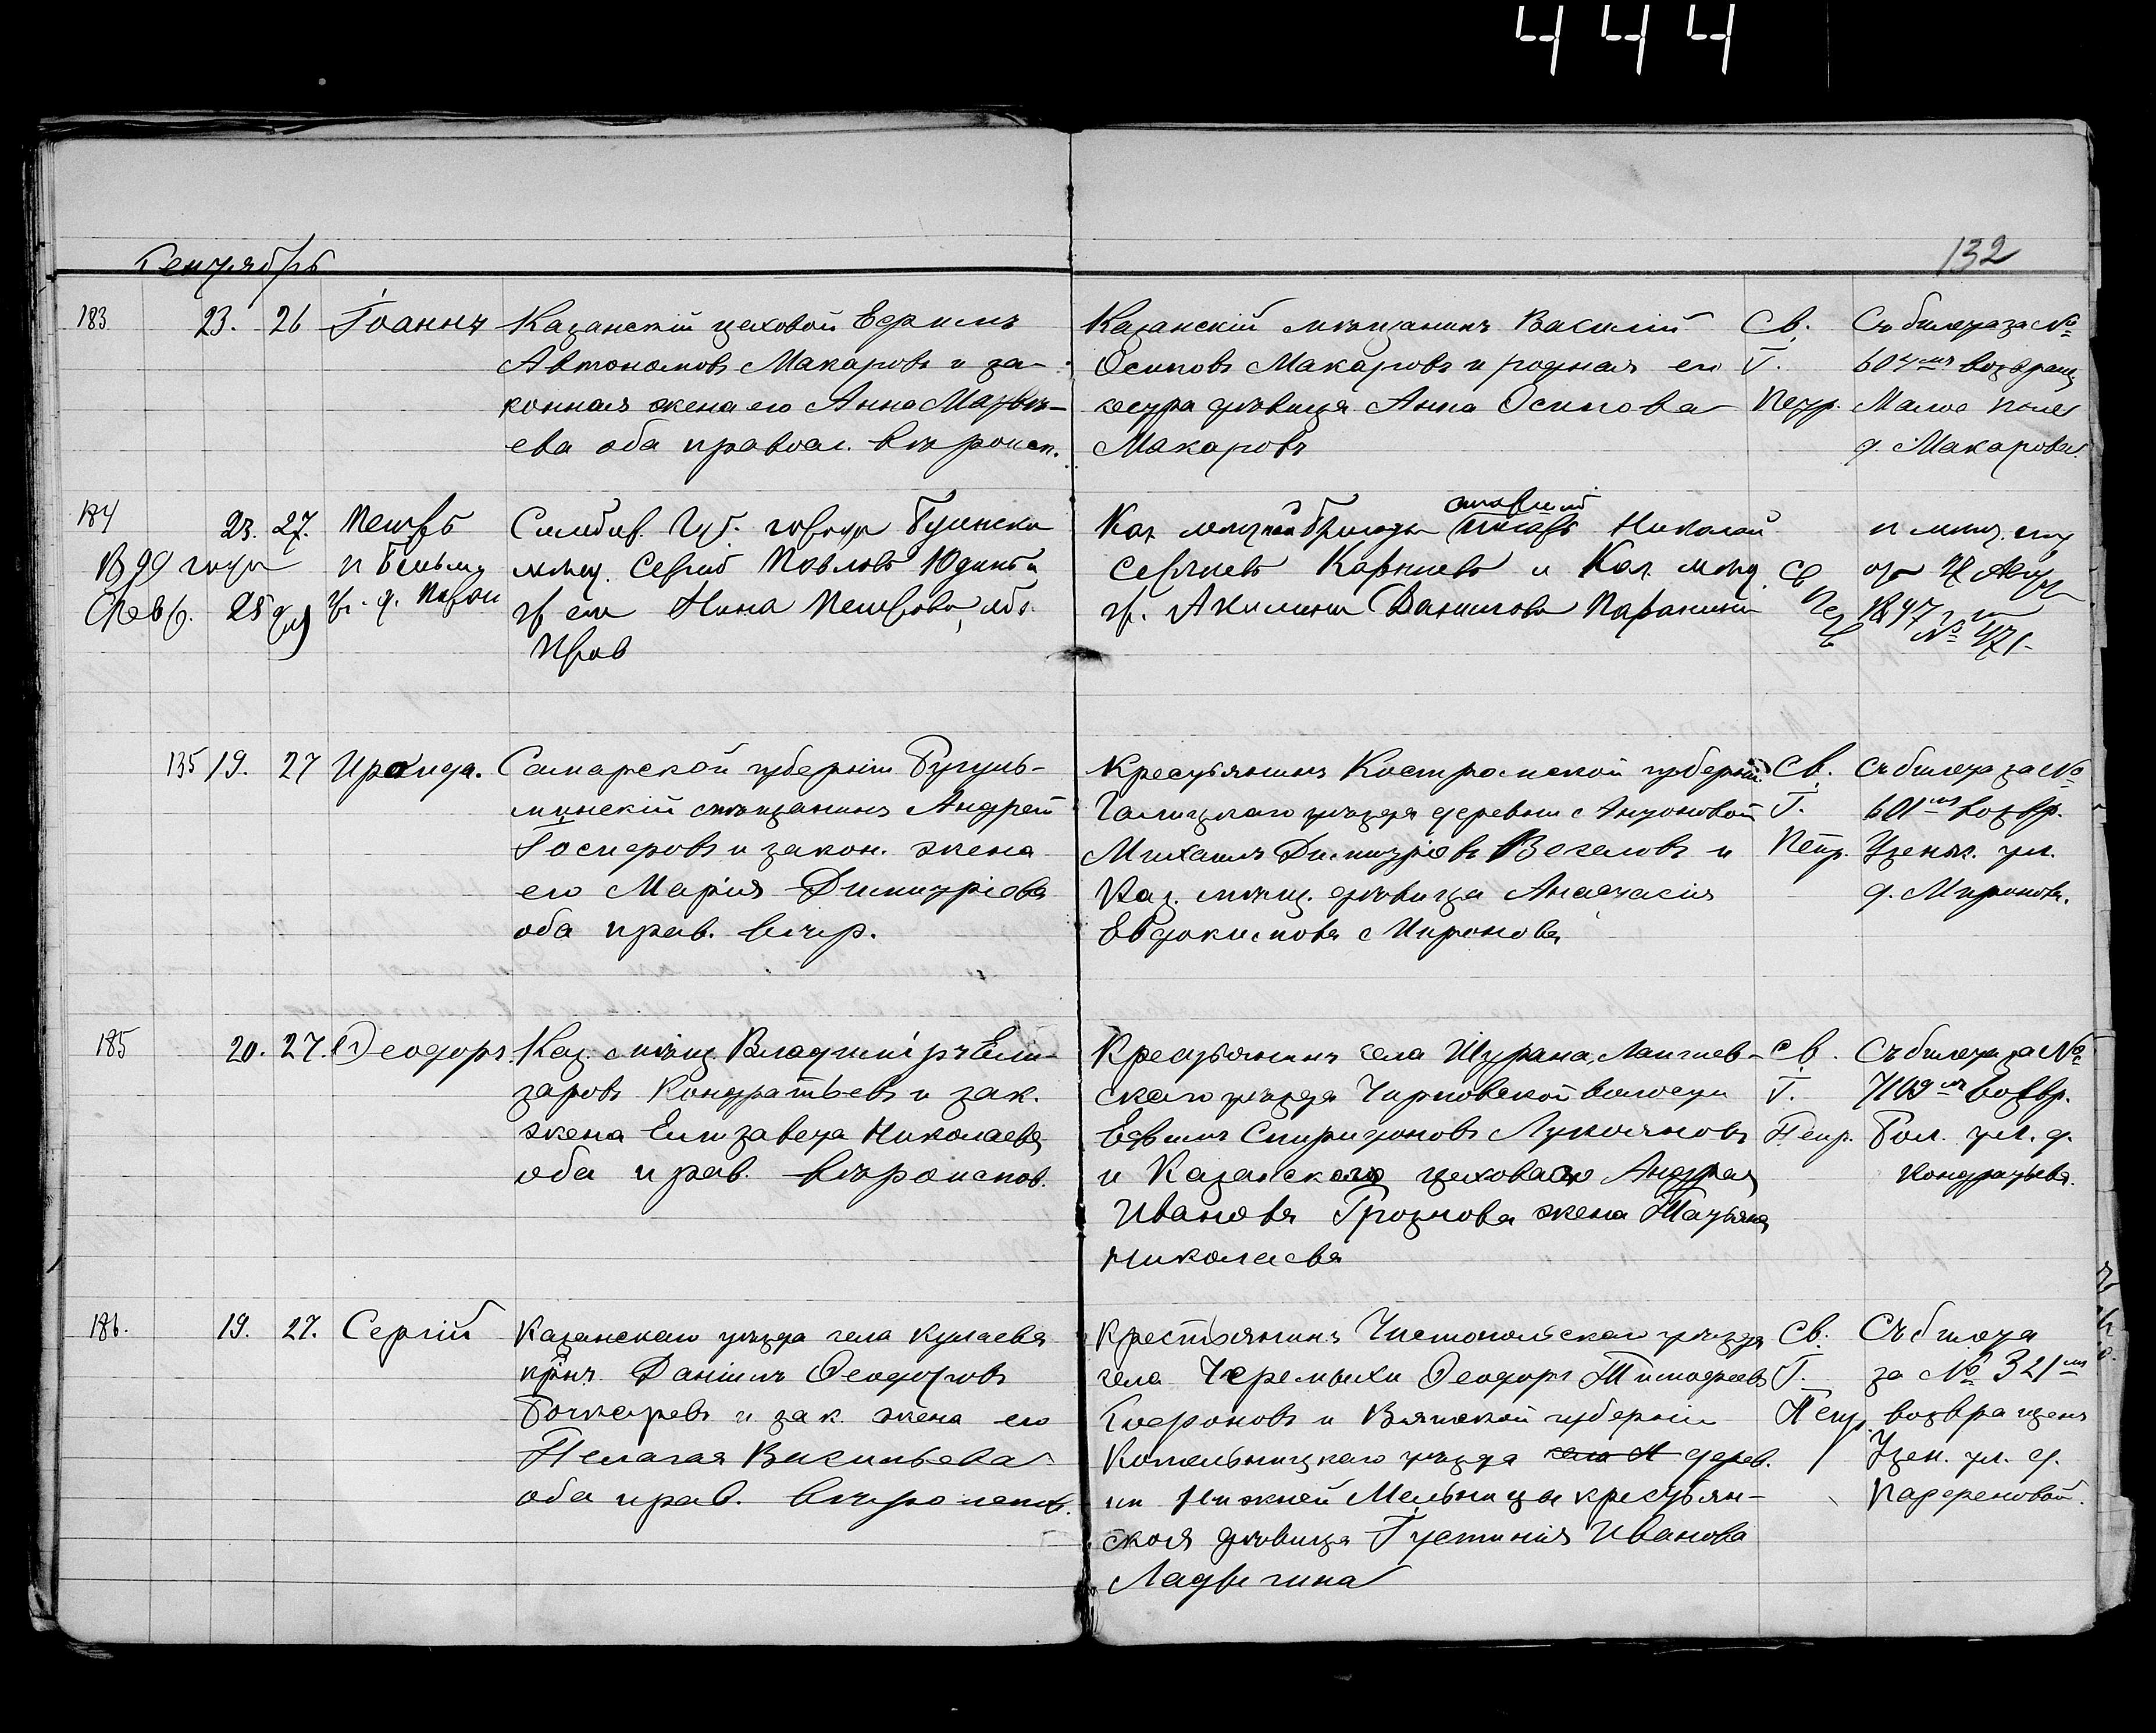 444
132
Сентябрь
183 23. 26 Іоаннъ
Казанскій цеховой Ефримъ
Автономовъ Макаровъ и за-
конная жена его Анна Матвѣ-
ева оба православ. вѣроисп.
Казанскій мѣщанинъ Василій
Осиповъ Макаровъ и родная его
сестра дѣвица Анна Осипова
Макарова
Св.
Т.
Петр.
Съ билета за №
604мъ возвращ
Малое поле
д. Макарова.
184 23. 27. Петръ
В 99 году
Февр. 28 дня
Симбир. Губ. города Буинска
мѣщ. Сергѣй Павловъ Юдинъ и
ж. его Нина Петрова, оба
Прав
Николай
Сергѣевъ Корнѣевъ и Каз. мѣщ.
Акилина Данилова
Св
1897
№ 471
135 19. 27 Ираида.
Самарской губерніи Бугуль-
минскій мѣщанинъ Андрей
Іосифовъ и закон. жена
его Марія Димитріева
оба прав. вѣр.
Крестьянинъ Костромской губерніи
Галицкаго уѣзда деревни Антоновой
Михаилъ Димитріевъ Веселовъ и
Каз. мѣщ. дѣвица Анастасія
Евдокимова Миронова
Св.
Т.
Петр.
Съ билета за №
601мъ возвр.
ул.
д. Миронова.
185 20. 27. Ѳеодоръ.
Каз. мѣщ. Владиміръ Ели-
заровъ Кондратьевъ и зак.
жена Елизавета Николаева
оба прав. вѣроиспов.
Крестьянинъ села Шурана, Лаишев-
скаго уѣзда Чирповской волости
Спиридоновъ Лукояновъ
и Казанскаго цеховаго Андрея
Иванова Грознова жена Татьяна
Николаева
Св.
Т.
Петр.
Съ билета за №
7109мъ возвр.
Бол. ул. д.
Кондратьева.
186. 19. 27. Сергій
Казанскаго уѣзда села Кулаева
кр-нъ Даніилъ Ѳеодоровъ
Бочкаревъ и зак. жена его
Пелагая Васильева
оба прав. вѣроиспов.
Крестьянинъ Чистопольскаго уѣзда
села Черемыхи Ѳеодоръ Тимофеевъ
Софроновъ и Вятской губерніи
Котельницкаго уѣзда села Н дерев.
ни Нижней Мельницы крестьян-
ская дѣвица Іустинія Иванова
Ладыгина
Св.
Т.
Петр.
Съ билета
за № 321мъ
возвращенъ
ул. д.
Парфеновой.